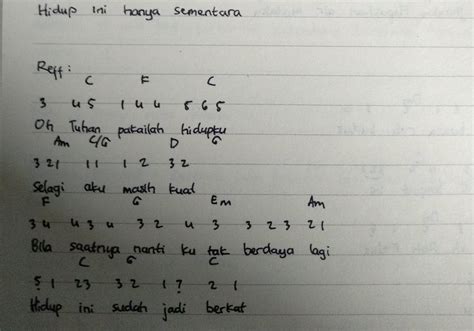 Hidup ini hanya sementara
Reff :
C F C
3 4 5 1 4 4 5 6 5
Oh Tuhan pakailah hidupku
Am C/G D G
3 2 1 1 1 1 2 3 2
Selagi aku masih kuat
F G Em Am
3 4 4 3 4 3 2 4 3 3 2 3 2 1
Bila saatnya nanti ku tak berdaya lagi
C G C
5 1 2 3 3 2 1 7 2 1
Hidup ini sudah jadi berkat